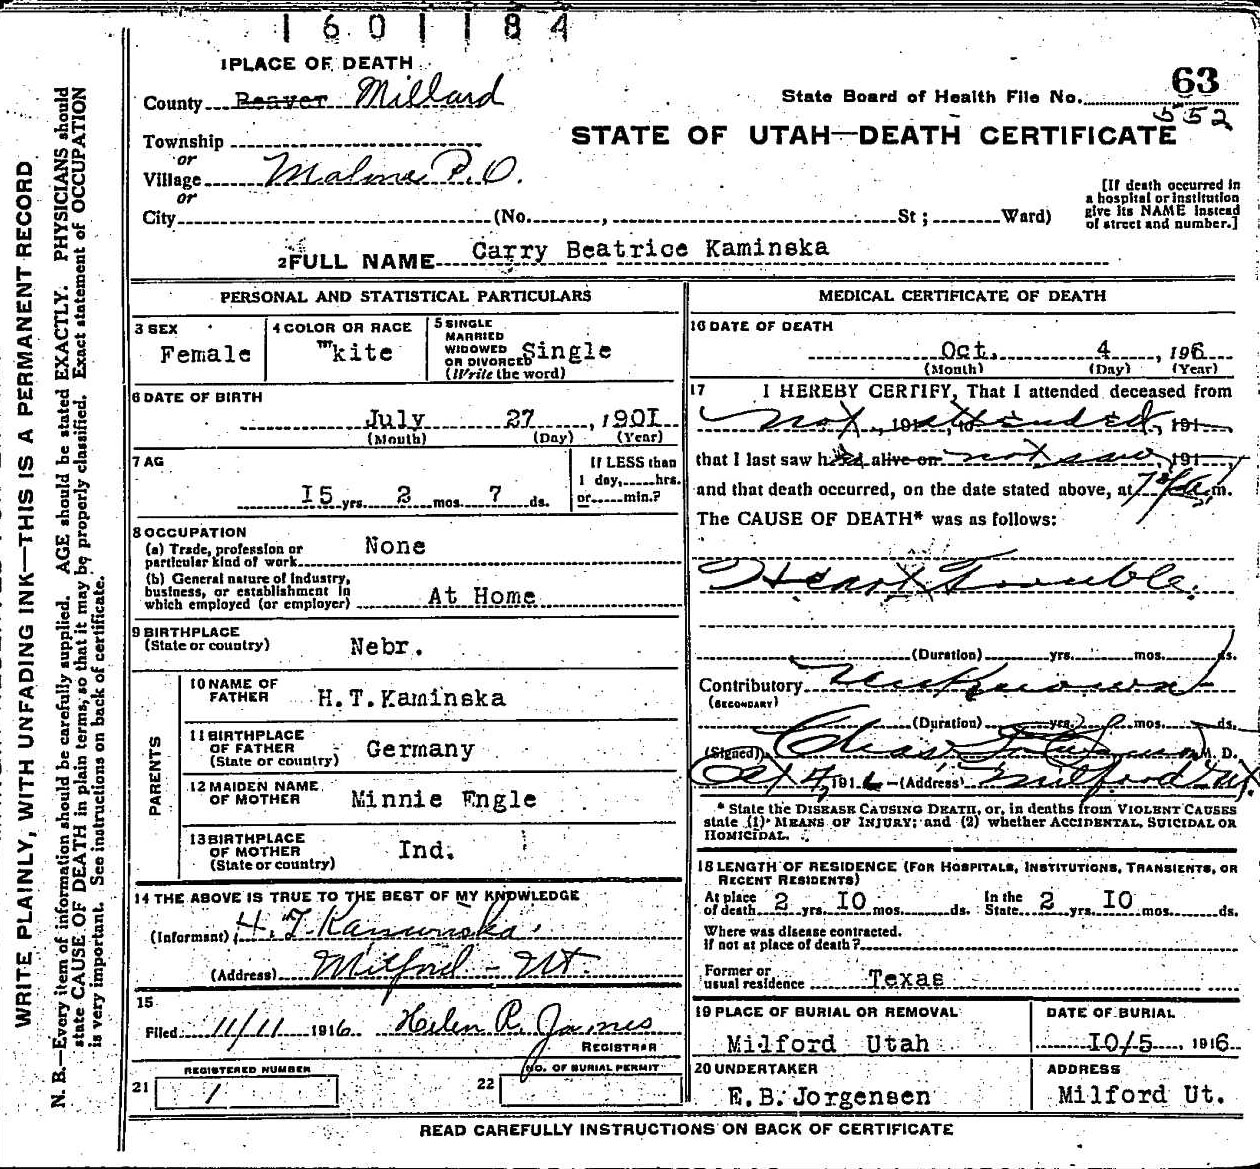 1601184
1 PLACE OF DEATH
County Beaver Millard
State Board of Health File No. 63
552
STATE OF UTAH—DEATH CERTIFICATE
Township
or
Village Malone P.O.
or
City (No. , St ; Ward)
[If death occurred in
a hospital or institution
give its NAME instead
of street and number.]
2 FULL NAME Carry Beatrice Kaminska
PERSONAL AND STATISTICAL PARTICULARS
3 SEX
Female
4 COLOR OR RACE
Wkite
5 SINGLE
MARRIED
WIDOWED
OR DIVORCED
(Write the word)
Single
6 DATE OF BIRTH
July 27, 1901
(Month) (Day) (Year)
7 AG
15 yrs. 2 mos. 7 ds.
If LESS than
1 day, hrs.
or min.?
8 OCCUPATION
(a) Trade, profession or
particular kind of work None
(b) General nature of Industry,
business, or establishment in
which employed (or employer) At Home
9 BIRTHPLACE
(State or country) Nebr.
PARENTS
10 NAME OF
FATHER H.T.Kaminska
11 BIRTHPLACE
OF FATHER
(State or country) Germany
12 MAIDEN NAME
OF MOTHER Minnie Engle
13 BIRTHPLACE
OF MOTHER
(State or country) Ind.
14 THE ABOVE IS TRUE TO THE BEST OF MY KNOWLEDGE
(Informant) H.T. Kaminska.
(Address) Milford - Ut.
15
Filed 11/11 1916 Helen R. James
REGISTRAR
21 REGISTERED NUMBER
1
22 NO. OF BURIAL PERMIT
MEDICAL CERTIFICATE OF DEATH
16 DATE OF DEATH
Oct. 4, 196
(Month) (Day) (Year)
17 I HEREBY CERTIFY, That I attended deceased from
not, 191, to attended, 191
that I last saw h alive on not saw, 191
and that death occurred, on the date stated above, at m.
The CAUSE OF DEATH* was as follows:
Heart Trouble.
(Duration) yrs. mos. ds.
Contributory Unknown
(SECONDARY)
(Duration) yrs. mos. ds.
(Signed) Chas M. D.
Oct 4, 1916 (Address) Milford Ut.
* State the DISEASE CAUSING DEATH, or, in deaths from VIOLENT CAUSES
state (1) MEANS OF INJURY; and (2) whether ACCIDENTAL, SUICIDAL OR
HOMICIDAL.
18 LENGTH OF RESIDENCE (FOR HOSPITALS, INSTITUTIONS, TRANSIENTS, OR
RECENT RESIDENTS)
At place
of death 2 yrs. 10 mos. ds. In the
State 2 yrs. 10 mos. ds.
Where was disease contracted.
If not at place of death?
Former or
usual residence Texas
19 PLACE OF BURIAL OR REMOVAL
Milford Utah
DATE OF BURIAL
10/5, 1916
20 UNDERTAKER
E.B.Jorgensen
ADDRESS
Milford Ut.
READ CAREFULLY INSTRUCTIONS ON BACK OF CERTIFICATE
WRITE PLAINLY, WITH UNFADING INK—THIS IS A PERMANENT RECORD
N. B.—Every item of information should be carefully supplied. AGE should be stated EXACTLY. PHYSICIANS should
state CAUSE OF DEATH in plain terms, so that it may be properly classified. Exact statement of OCCUPATION
is very important. See instructions on back of certificate.